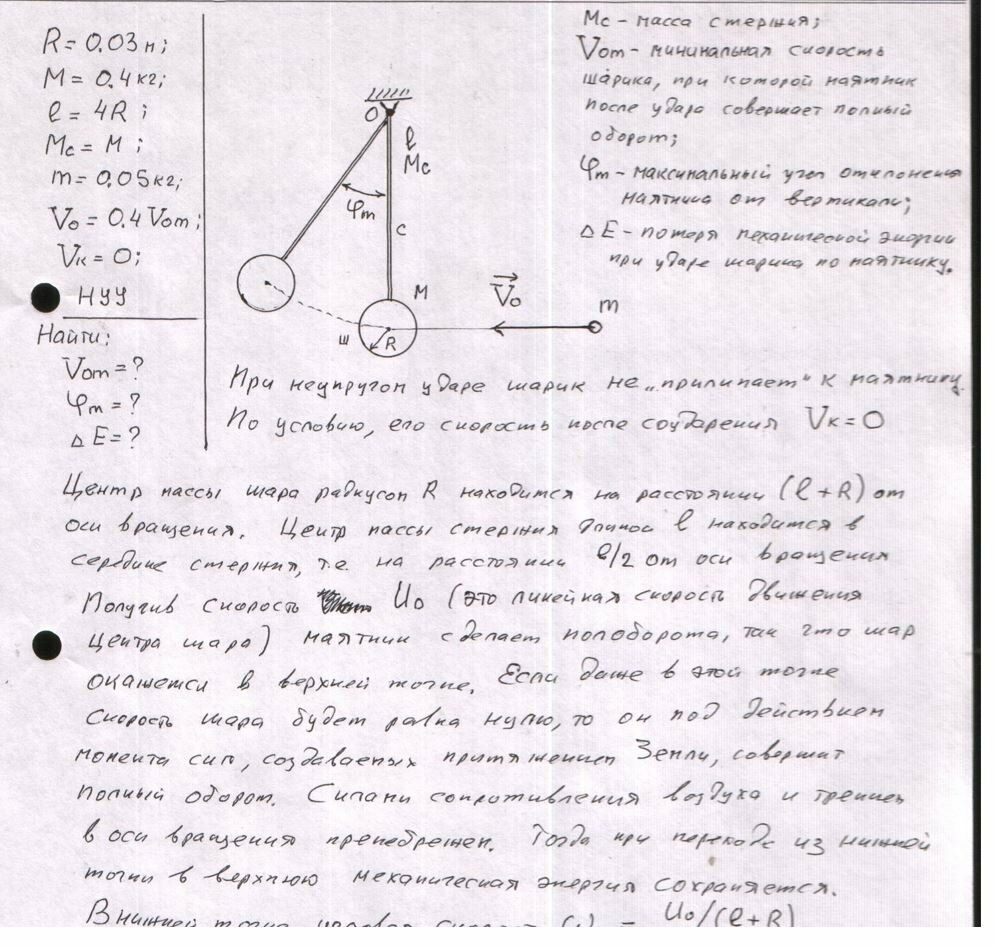 R = 0.03 м;
M = 0.4 кг;
ℓ = 4R ;
Mc = M ;
m = 0.05 кг;
V₀ = 0.4 Vom;
Vк = 0;
НУУ
Найти:
Vom = ?
φm = ?
ΔE = ?
O
ℓ
Mc
φm
c
M
V₀
m
ш
R
Mc – масса стержня;
Vom – минимальная скорость
шарика, при которой маятник
после удара совершает полный
оборот;
φm – максимальный угол отклонения
маятника от вертикали;
ΔE – потеря механической энергии
при ударе шарика по маятнику.
При неупругом ударе шарик не „прилипает" к маятнику.
По условию, его скорость после соударения Vк = 0
Центр массы шара радиусом R находится на расстоянии (ℓ + R) от
оси вращения. Центр массы стержня длиной ℓ находится в
середине стержня, т.е. на расстоянии ℓ/2 от оси вращения
Получив скорость U₀ (это линейная скорость движения
центра шара) маятник сделает полоборота, так что шар
окажется в верхней точке. Если даже в этой точке
скорость шара будет равна нулю, то он под действием
момента сил, создаваемых притяжением Земли, совершит
полный оборот. Силами сопротивления воздуха и трением
в оси вращения пренебрежем. Тогда при переходе из нижней
точки в верхнюю механическая энергия сохраняется.
В нижней точке угловая скорость ω = U₀/(ℓ + R)